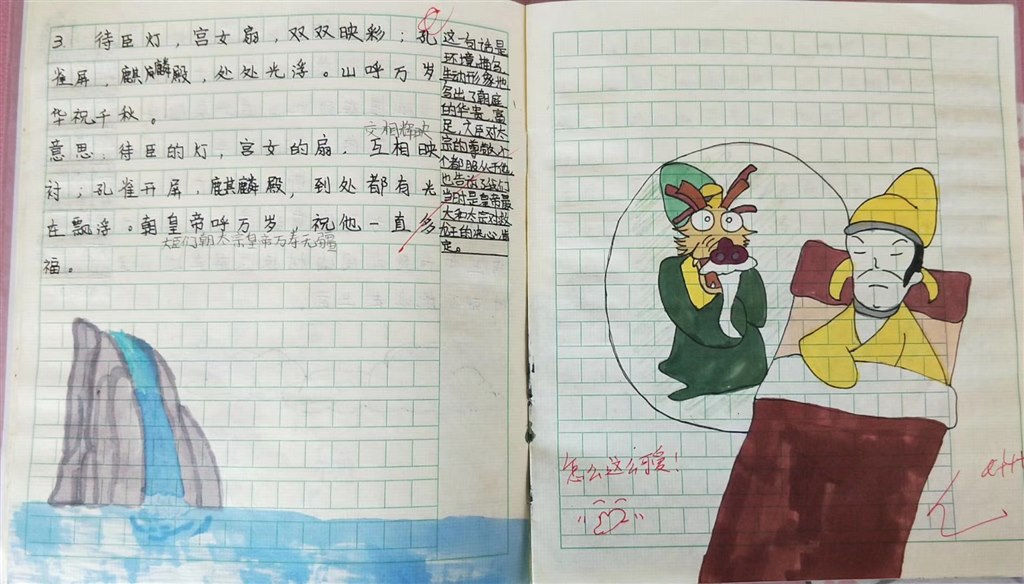 3. 待臣灯，宫女扇，双双映彩；孔
雀屏，麒麟殿，处处光浮。山呼万岁
华祝千秋。
交相辉映
意思：待臣的灯，宫女的扇，互相映
衬；孔雀开屏，麒麟殿，到处都有光
在飘浮。朝皇帝呼万岁，祝他一直多
大臣们朝太宗皇帝万寿无疆
福。
这一句话是
环境描写，
生动形象地
写出了朝庭
的华贵，富
足，大臣对太
宗的尊敬，个
个都服从于他，
也告诉了我们
当时是皇帝最
大和太宗对救
龙王的决心坚
定。
怎么这么可爱！